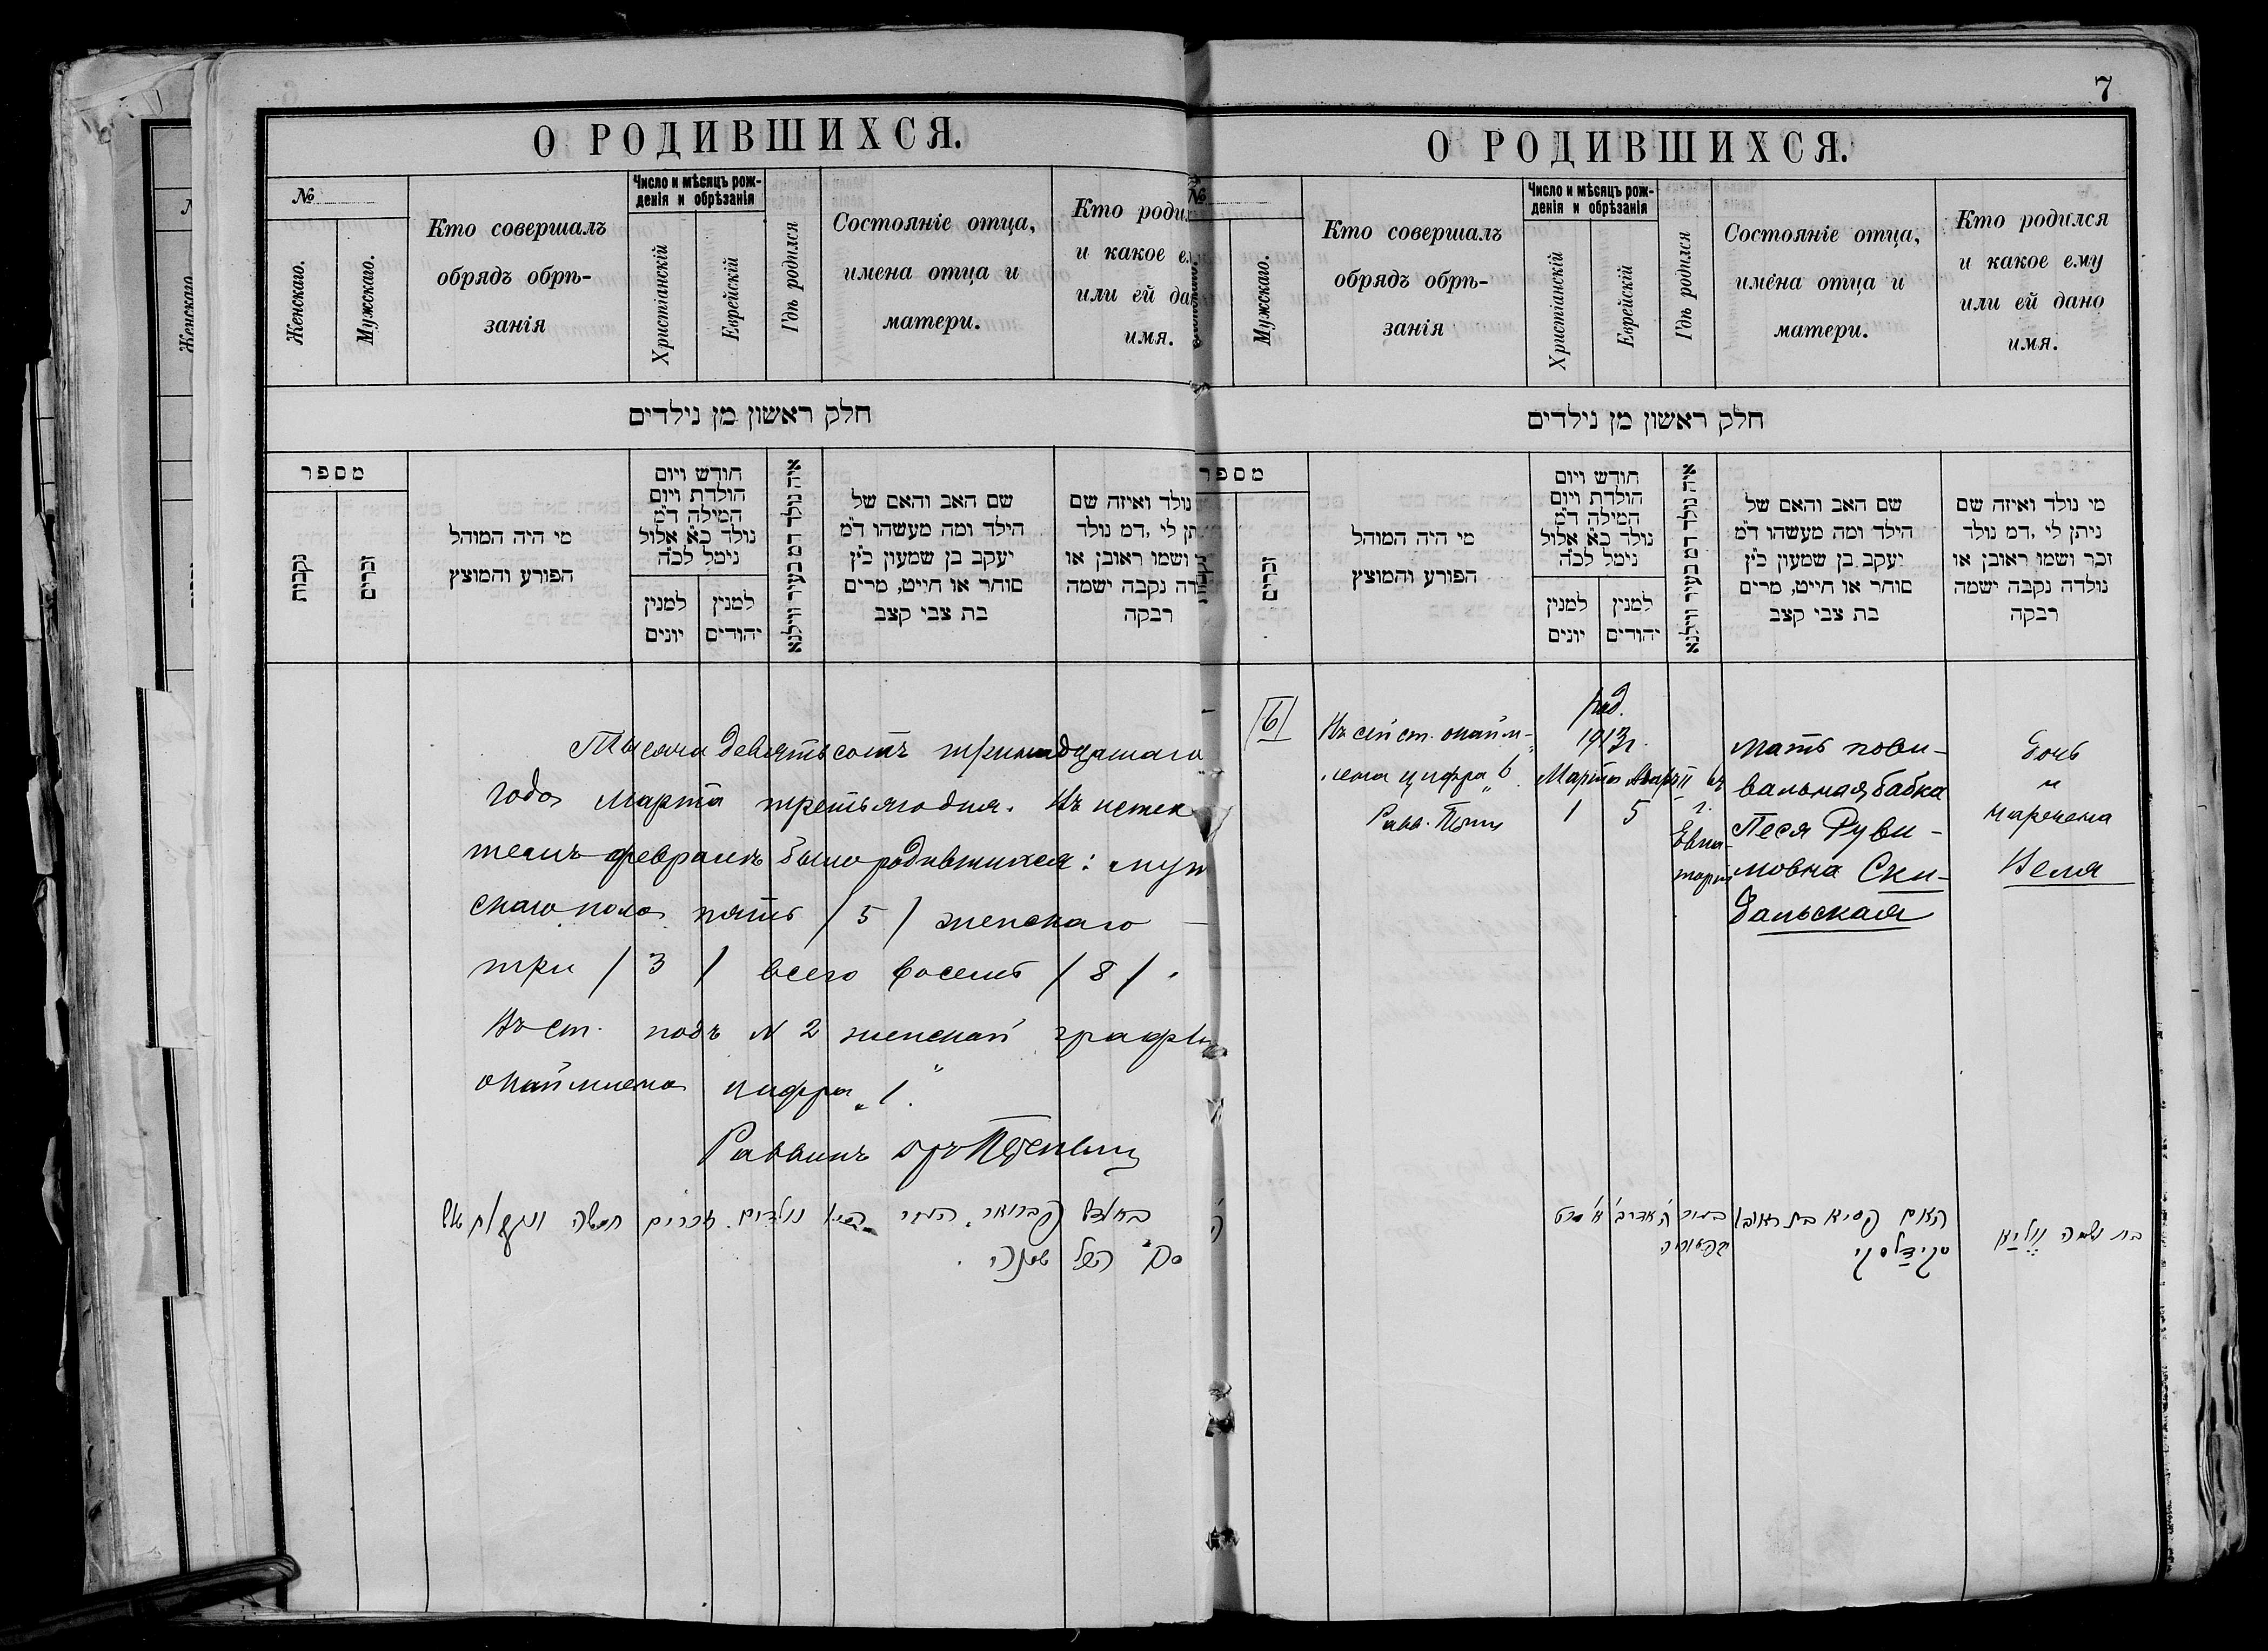 О РОДИВШИХСЯ.
№
Женскаго.
Мужскаго.
Кто совершалъ
обрядъ обрѣ-
занія
Число и мѣсяцъ рож-
денія и обрѣзанія
Христіанскій
Еврейскій
Гдѣ родился
Состояніе отца,
имена отца и
матери.
Кто роди
и какое е
или ей да
имя.
חלק ראשון מן נילדים
מספר
נקבות
זכרים
מי היה המוהל
הפורע והמוצץ
חודש ויום
הולדת ויום
המילה ד״מ
נולד כ״א אלול
נימל לכ״ה
למנין
יונים
למנין
יהודים
איה נולד דמ בעיר ווילנא
שם האב והאם של
הילד ומה מעשהו ד״מ
יעקב בן שמעון כ״ץ
סוחר או חייט, מרים
בת צבי קצב
נולד ואיזה שם
תן לי ,דמ נולד
ושמו ראובן או
דה נקבה ישמה
רבקה
Тысяча девятьсотъ тринадцатаго
года Марта третьяго дня. Въ истек
темъ февралѣ было родившихся: муж
скаго пола пять / 5 / женскаго —
три / 3 / всего восемь / 8 / .
Въ ст. подъ N 2 женской графы
окаймлена цифра „1.“
Раввинъ
7
О РОДИВШИХСЯ.
№
Мужскаго.
Кто совершалъ
обрядъ обрѣ-
занія
Число и мѣсяцъ рож-
денія и обрѣзанія
Христіанскій
Еврейскій
Гдѣ родился
Состояніе отца,
имена отца и
матери.
Кто родился
и какое ему
или ей дано
имя.
חלק ראשון מן נילדים
מספר
זכרים
מי היה המוהל
הפורע והמוצץ
חודש ויום
הולדת ויום
המילה ד״מ
נולד כ״א אלול
נימל לכ״ה
למנין
יונים
למנין
יהודים
איה נולד דמ בעיר ווילנא
שם האב והאם של
הילד ומה מעשהו ד״מ
יעקב בן שמעון כ״ץ
סוחר או חייט, מרים
בת צבי קצב
מי נולד ואיזה שם
ניתן לי ,דמ נולד
זכר ושמו ראובן או
נולדה נקבה ישמה
רבקה
6
Въ сей ст. окайм-
лена цифра „6“
Равв.
род.
1913г.
Марта
1
Адаръ II
5
въ
г.
Евпа-
торіи
Мать пови-
вальная бабка
Песя Руви-
новна Ски-
дальская
Дочь
и
наречена
Неля
האם פסיא בת ראובן
סקידלסקי